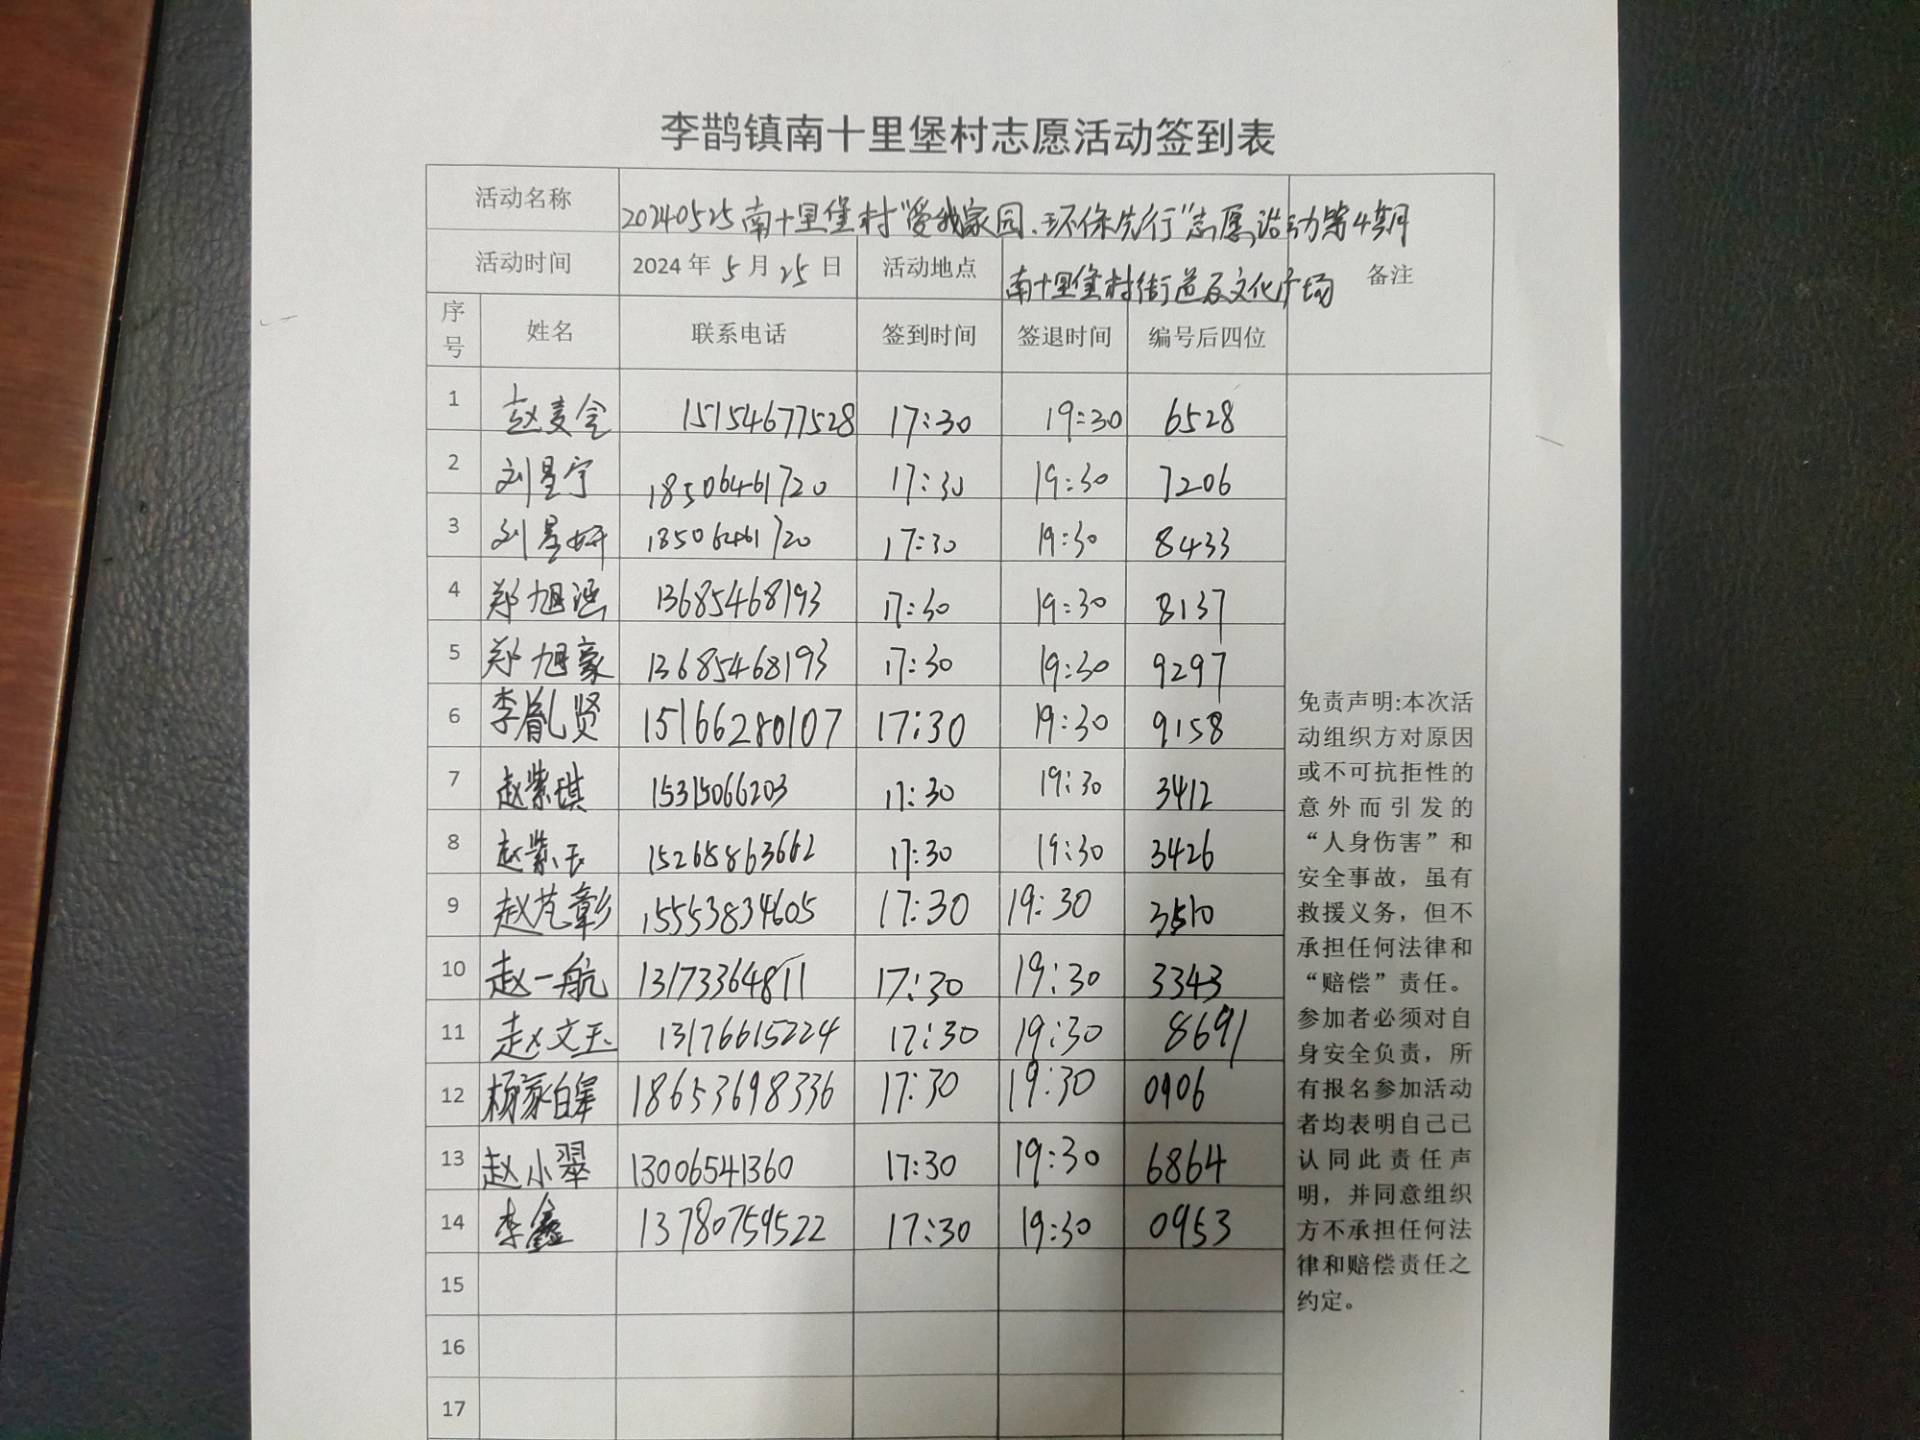 李鹊镇南十里堡村志愿活动签到表
活动名称 20240525南十里堡村"爱我家园、环保先行"志愿活动第4期
活动时间 2024年5月25日 活动地点 南十里堡村街道及文化广场 备注
序号 姓名 联系电话 签到时间 签退时间 编号后四位
1 赵麦会 15154677528 17:30 19:30 6528
2 刘星宇 18506461720 17:30 19:30 7206
3 刘星妍 18506461720 17:30 19:30 8433
4 郑旭涵 13685468193 17:30 19:30 8137
5 郑旭豪 13685468193 17:30 19:30 9297
6 李胤贤 15166280107 17:30 19:30 9158
7 赵紫琪 15315066203 17:30 19:30 3412
8 赵紫玉 15265863662 17:30 19:30 3426
9 赵芃彰 15553834605 17:30 19:30 3510
10 赵一航 13173364811 17:30 19:30 3343
11 赵文玉 13176615224 17:30 19:30 8691
12 杨家皞 18653698336 17:30 19:30 0906
13 赵小翠 13006541360 17:30 19:30 6864
14 李鑫 13780759522 17:30 19:30 0953
15
16
17
免责声明:本次活
动组织方对原因
或不可抗拒性的
意外而引发的
“人身伤害”和
安全事故，虽有
救援义务，但不
承担任何法律和
“赔偿”责任。
参加者必须对自
身安全负责，所
有报名参加活动
者均表明自己已
认同此责任声
明，并同意组织
方不承担任何法
律和赔偿责任之
约定。